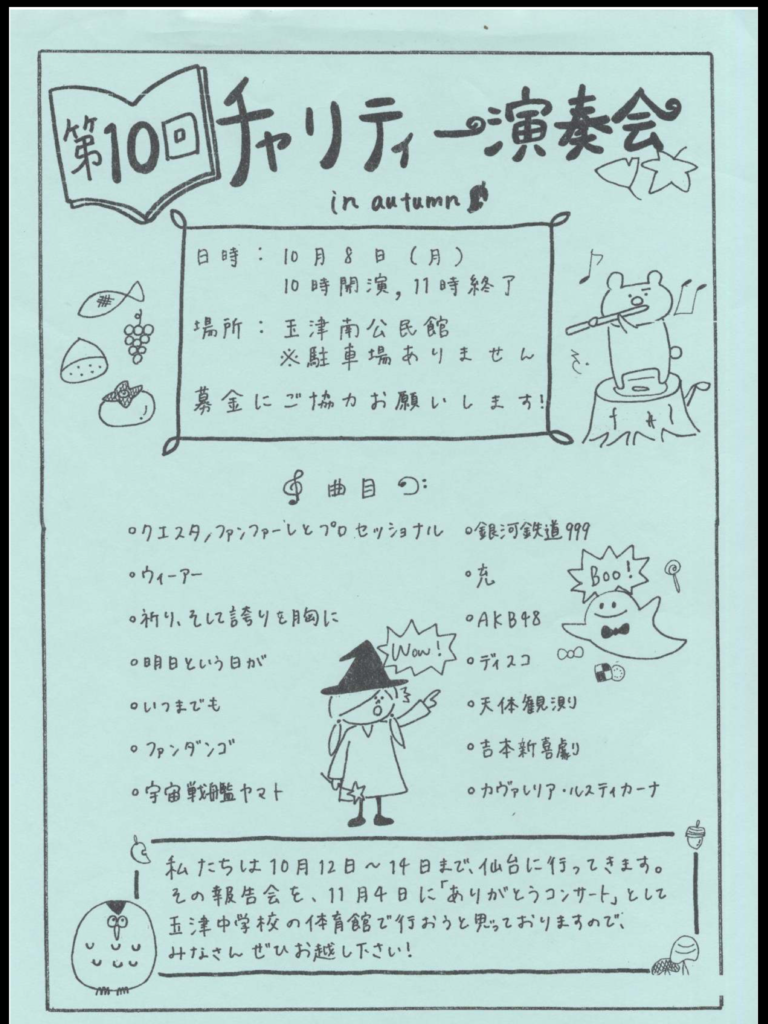 第10回
チャリティー演奏会
in autumn
日時：10月8日（月）
10時開演，11時終了
場所：玉津南公民館
※駐車場ありません
募金にご協力お願いします！
曲目
○クエスタ，ファンファーレとプロセッショナル
○ウィーアー
○祈り、そして誇りを胸に
○明日という日が
○いつまでも
○ファンダンゴ
○宇宙戦艦ヤマト
○銀河鉄道999
○充
○AKB48
○ディスコ
○天体観測
○吉本新喜劇
○カヴァレリア・ルスティカーナ
Boo!
Wow!
私たちは10月12日～14日まで、仙台に行ってきます。
その報告会を、11月4日に「ありがとうコンサート」として
玉津中学校の体育館で行おうと思っておりますので、
みなさんぜひお越し下さい！